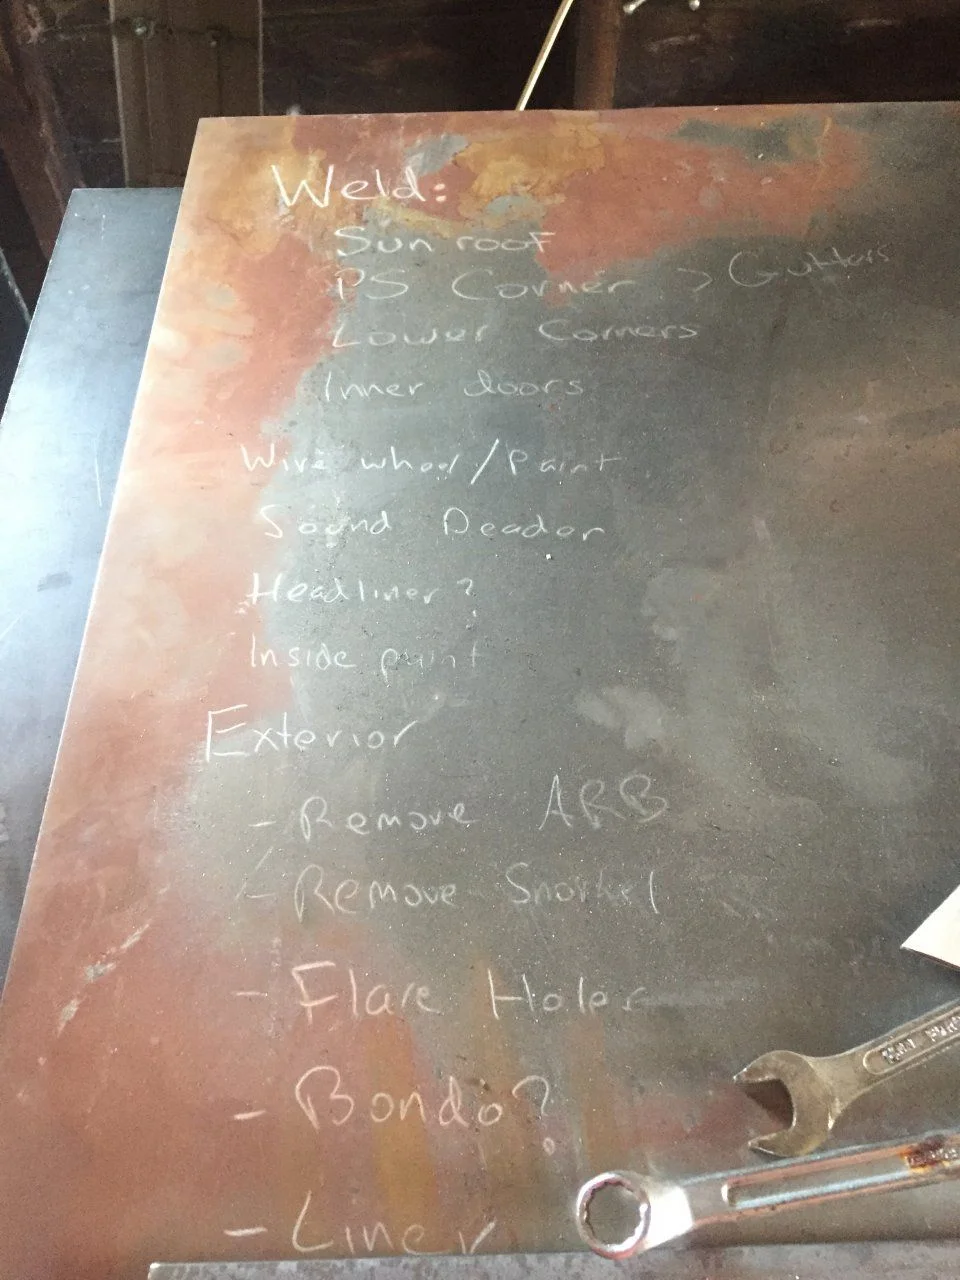 Weld:
Sunroof
PS Corner > Gutters
Lower Corners
Inner doors
Wire wheel/Paint
Sound Deador
Headliner?
Inside paint
Exterior
- Remove ARB
- Remove Snorkel
- Flare Holes
- Bondo?
- Liner